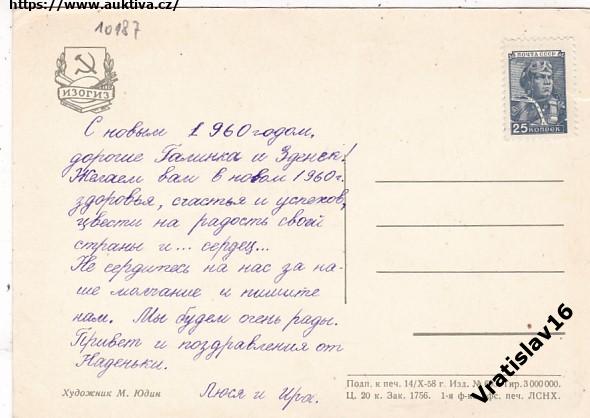 https://www.auktiva.cz/
10187
ИЗОГИЗ
ПОЧТА СССР
25 КОПЕЕК
С новым 1960 годом,
дорогие Галинка и Зденек!
Желаем вам в новом 1960г.
здоровья, счастья и успехов,
цвести на радость своей
страны и... сердец...
Не сердитесь на нас за на-
ше молчание и пишите
нам. Мы будем очень рады.
Привет и поздравления от
Наденьки.
Люся и Ира.
Художник М. Юдин
Подп. к печ. 14/X-58 г. Изд. № Тир. 3 000 000.
Ц. 20 к. Зак. 1756. 1-я ф-ка печ. ЛСНХ.
Vratislav16